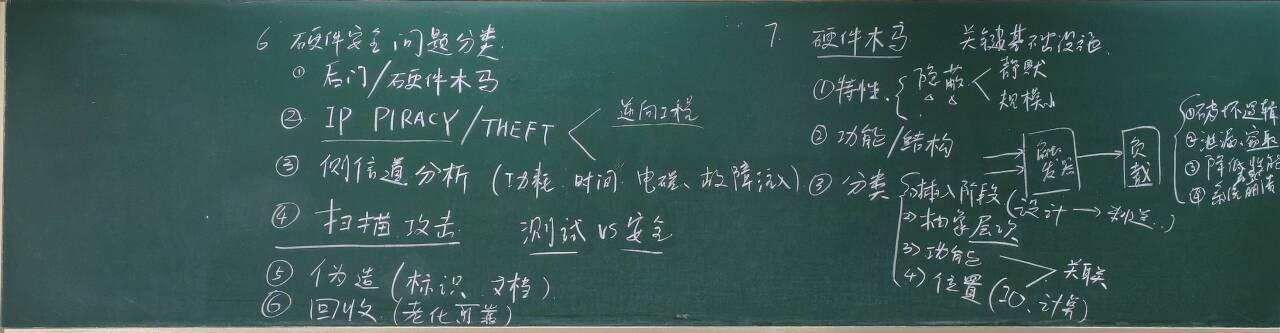 6 硬件安全问题分类.
① 后门/硬件木马
② IP PIRACY/THEFT
逆向工程
③ 侧信道分析(功耗.时间.电磁、故障注入)
④ 扫描攻击 测试 VS 安全
⑤ 伪造(标识、文档)
⑥ 回收(老化可靠)
7. 硬件木马 关键基础设施.
①特性.
隐蔽
静默
规模小
② 功能/结构
触发器
负载
①破坏逻辑
②泄漏、窃取
③降低性能
④系统崩溃
③ 分类
1)插入阶段(设计→制造..)
2)抽象层次
3)功能
4)位置(IO、计算)
关联